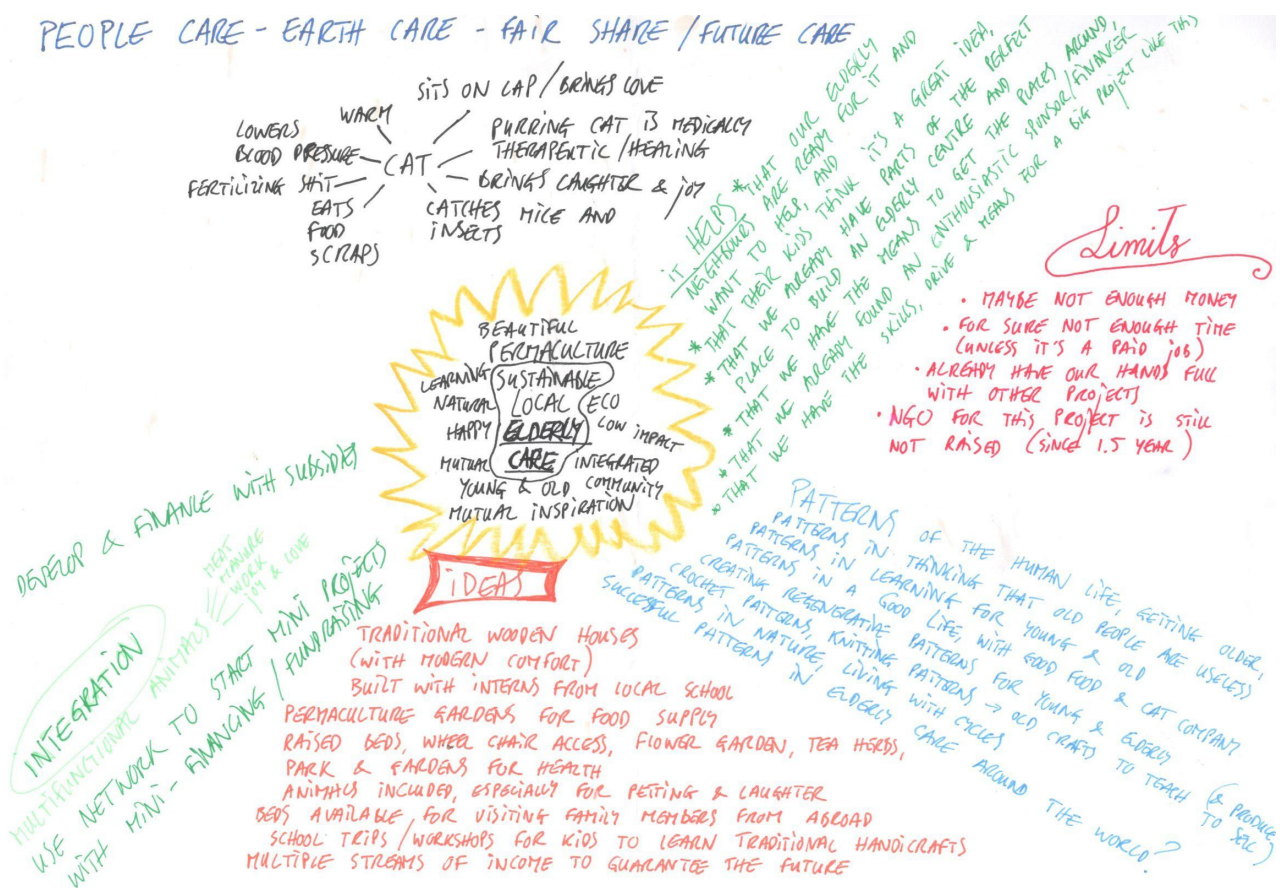 PEOPLE CARE - EARTH CARE - FAIR SHARE / FUTURE CARE
SITS ON LAP / BRINGS LOVE
WARM
LOWERS
BLOOD PRESSURE
PURRING CAT IS MEDICALLY
THERAPEUTIC / HEALING
CAT
FERTILIZING SHIT
BRINGS LAUGHTER & JOY
EATS
FOOD
SCRAPS
CATCHES MICE AND
INSECTS
IT HELPS * THAT OUR ELDERLY
NEIGHBOURS ARE READY FOR IT AND
WANT TO HELP, AND
* THAT THEIR KIDS THINK IT'S A GREAT IDEA,
* THAT WE ALREADY HAVE PARTS OF THE PERFECT
PLACE TO BUILD AN ELDERLY CENTRE AND
* THAT WE HAVE THE MEANS TO GET THE PLACES AROUND,
* THAT WE ALREADY FOUND AN ENTHOUSIASTIC SPONSOR/FINANCER
* THAT WE HAVE THE SKILLS, DRIVE & MEANS FOR A BIG PROJECT LIKE THIS
Limits
• MAYBE NOT ENOUGH MONEY
• FOR SURE NOT ENOUGH TIME
(UNLESS IT'S A PAID JOB)
• ALREADY HAVE OUR HANDS FULL
WITH OTHER PROJECTS
• NGO FOR THIS PROJECT IS STILL
NOT RAISED (SINCE 1.5 YEAR)
BEAUTIFUL
PERMACULTURE
LEARNING SUSTAINABLE
NATURAL LOCAL ECO
HAPPY ELDERLY LOW IMPACT
MUTUAL CARE INTEGRATED
YOUNG & OLD COMMUNITY
MUTUAL INSPIRATION
DEVELOP & FINANCE WITH SUBSIDIES
INTEGRATION
MULTIFUNCTIONAL ANIMALS
MEAT
MANURE
WORK
JOY & LOVE
USE NETWORK TO START MINI PROJECTS
WITH MINI-FINANCING / FUNDRAISING
IDEAS
TRADITIONAL WOODEN HOUSES
(WITH MODERN COMFORT)
BUILT WITH INTERNS FROM LOCAL SCHOOL
PERMACULTURE GARDENS FOR FOOD SUPPLY
RAISED BEDS, WHEEL CHAIR ACCESS, FLOWER GARDEN, TEA HERBS,
PARK & GARDENS FOR HEALTH
ANIMALS INCLUDED, ESPECIALLY FOR PETTING & LAUGHTER
BEDS AVAILABLE FOR VISITING FAMILY MEMBERS FROM ABROAD
SCHOOL TRIPS / WORKSHOPS FOR KIDS TO LEARN TRADITIONAL HANDICRAFTS
MULTIPLE STREAMS OF INCOME TO GUARANTEE THE FUTURE
PATTERNS OF THE HUMAN LIFE, GETTING OLDER,
PATTERNS IN THINKING THAT OLD PEOPLE ARE USELESS
PATTERNS IN LEARNING FOR YOUNG & OLD
PATTERNS IN A GOOD LIFE, WITH GOOD FOOD & CAT COMPANY
CREATING REGENERATIVE PATTERNS FOR YOUNG & ELDERLY
CROCHET PATTERNS, KNITTING PATTERNS → OLD CRAFTS TO TEACH (& PRODUCE
TO SELL)
PATTERNS IN NATURE, LIVING WITH CYCLES
SUCCESSFUL PATTERNS IN ELDERLY CARE AROUND THE WORLD?